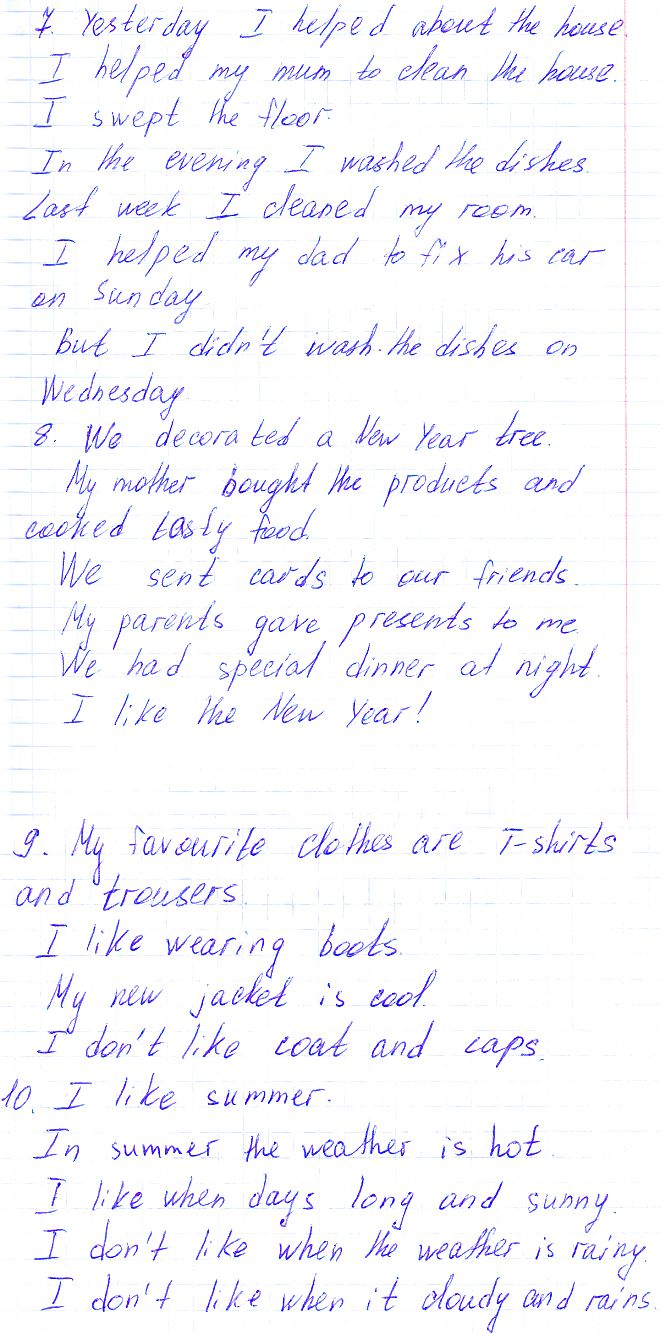 7. Yesterday I helped about the house.
I helped my mum to clean the house.
I swept the floor.
In the evening I washed the dishes.
Last week I cleaned my room.
I helped my dad to fix his car
on Sunday
But I didn't wash the dishes on
Wednesday
8. We decorated a New Year tree.
My mother bought the products and
cooked tasty food.
We sent cards to our friends.
My parents gave presents to me
We had special dinner at night.
I like the New Year!
9. My favourite clothes are T-shirts
and trousers
I like wearing boots.
My new jacket is cool.
I don't like coat and caps.
10. I like summer.
In summer the weather is hot.
I like when days long and sunny.
I don't like when the weather is rainy.
I don't like when it cloudy and rains.